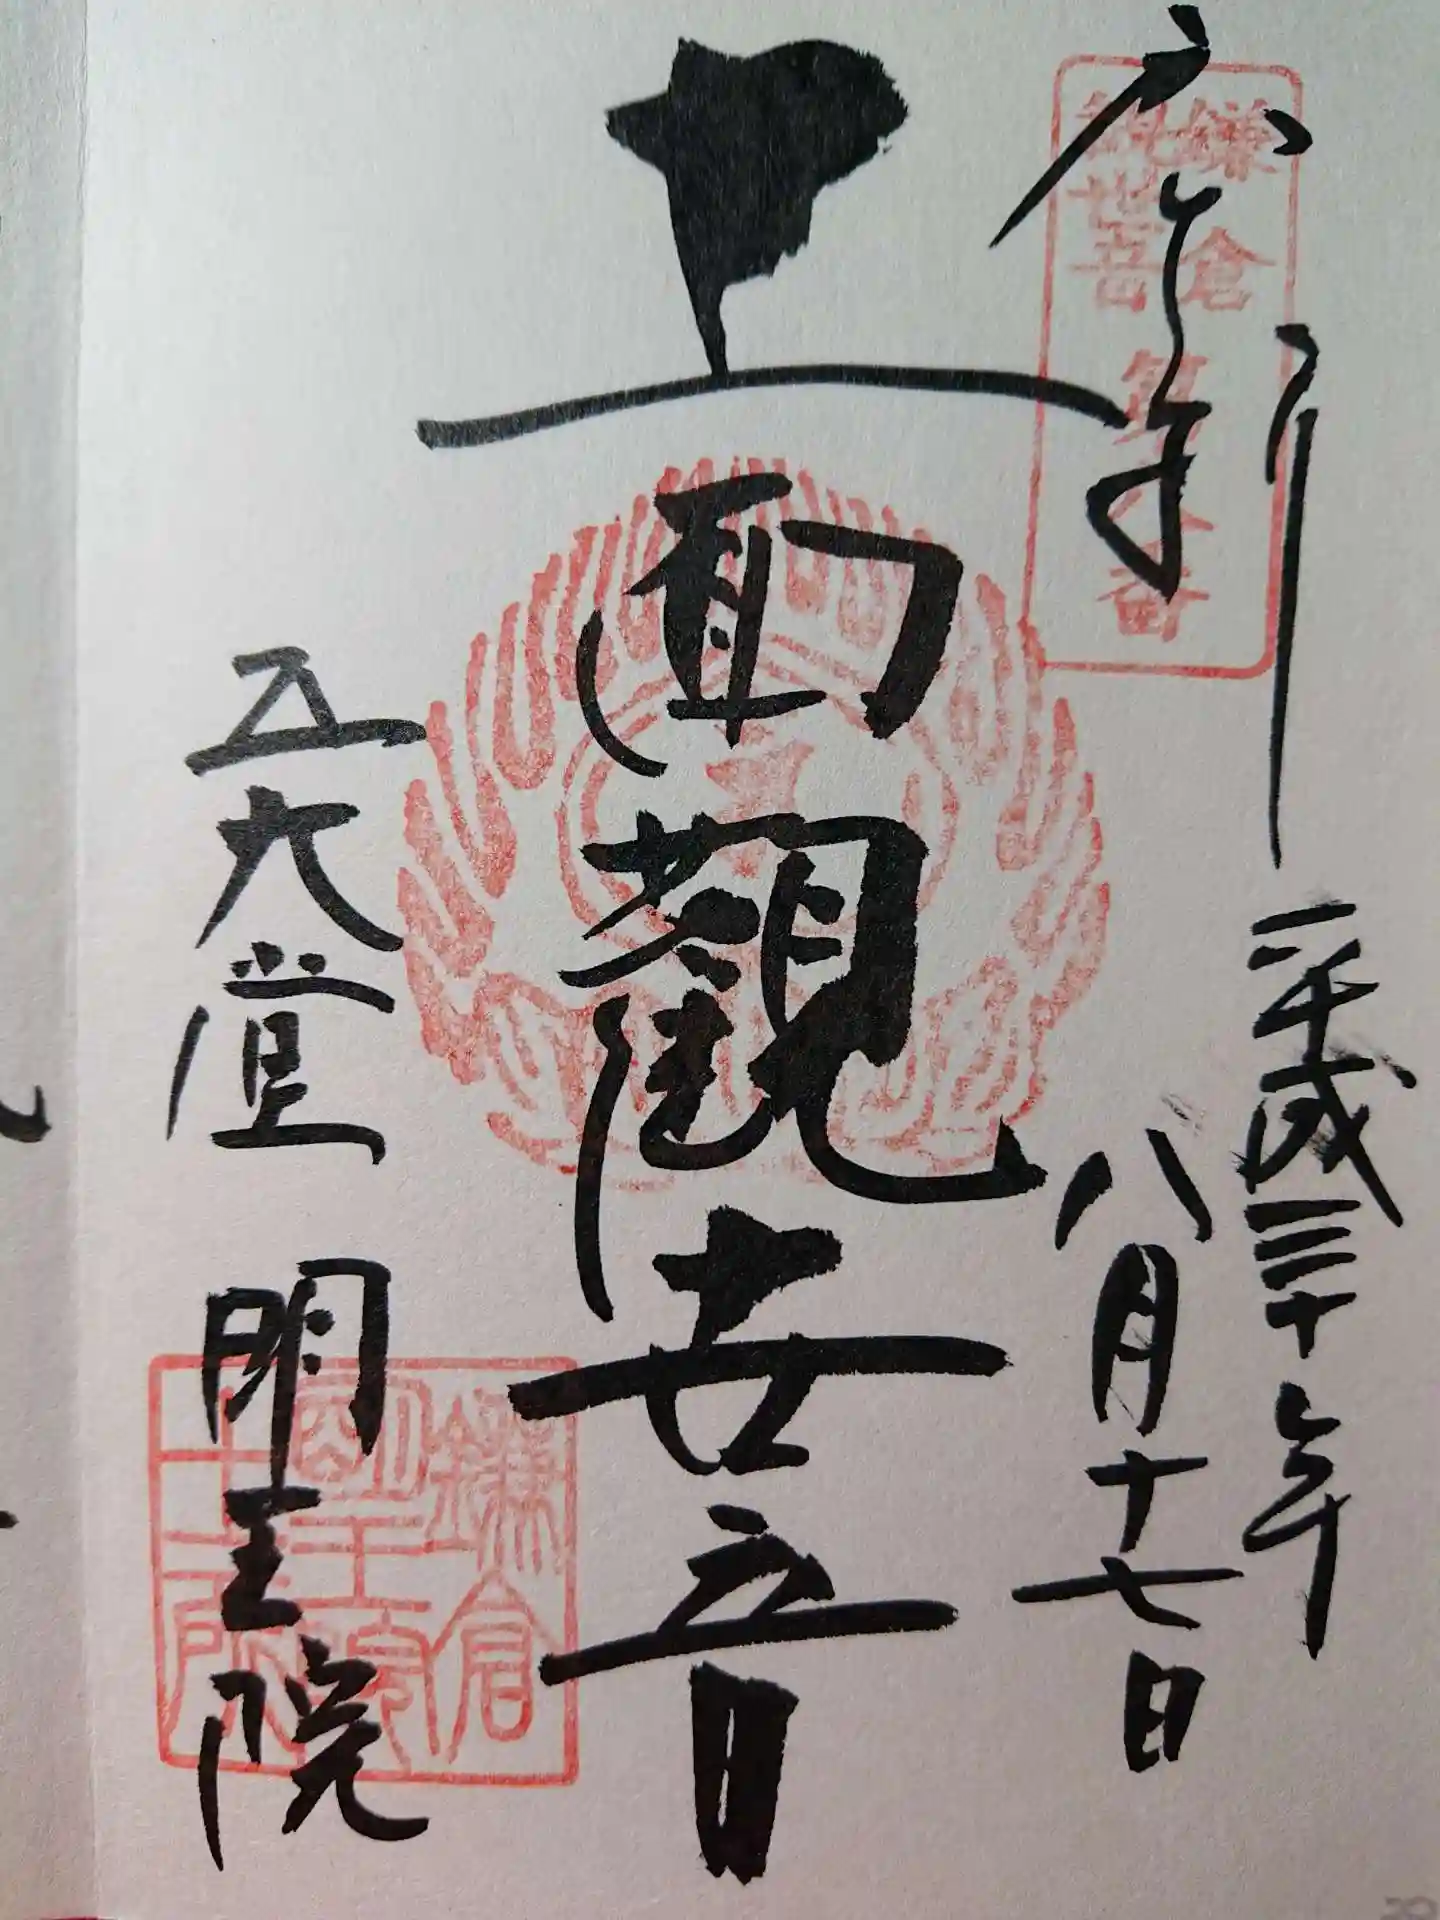 奉拝
平成三十年
八月十七日
鎌倉
観世音
第八番
十一面觀世音
五大堂 明王院
鎌倉
明王院
十二所